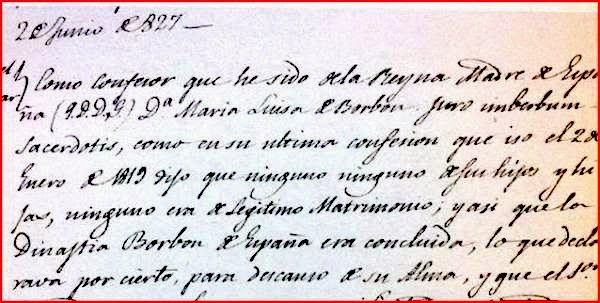 2 de Junio de 1827 —
Como confesor que he sido de la Reyna Madre de Espa
ña (q.D.D.G.) Dª Maria Luisa de Borbon. Juro imberbum
Sacerdotis, como en su ultima confesion que iso el 2 de
Enero de 1819 dijo que ninguno ninguno de sus hijos y hi
jas, ninguno era de Legitimo Matrimonio; y asi que la
Dinastia Borbon de España era concluida, lo que decla
rava por cierto, para descanso de su Alma, y que el Sor.